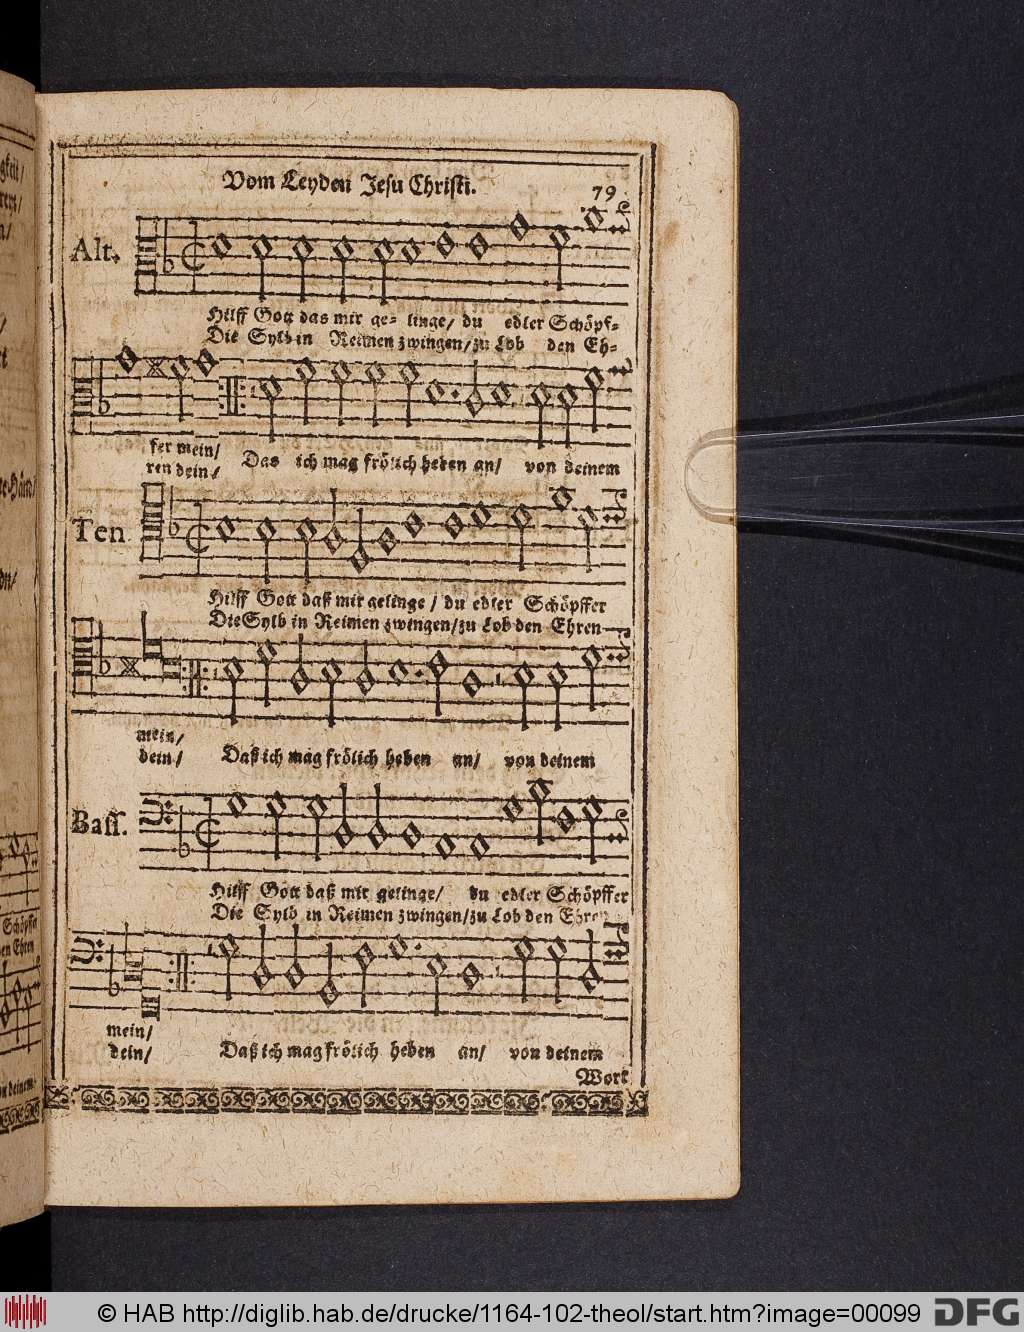 Vom Leyden Jesu Christi.
79
Alt.
Hilff Gott das mir ge- linge/ du edler Schöpf-
Die Sylb in Reimen zwingen/zu Lob den Eh-
fer mein/
ren dein/ Das ich mag frölich heben an/ von deinem
Ten
Hilff Gott daß mir gelinge / du edler Schöpffer
Die Sylb in Reimen zwingen/zu Lob den Ehren
mein/
dein/ Daß ich mag frölich heben an/ von deinem
Bass.
Hilff Gott daß mir gelinge/ du edler Schöpffer
Die Sylb in Reimen zwingen/zu Lob den Ehren
mein/
dein/ Daß ich mag frölich heben an/ von deinem
Wort
Schöpffer
en Ehren
© HAB http://diglib.hab.de/drucke/1164-102-theol/start.htm?image=00099
DFG